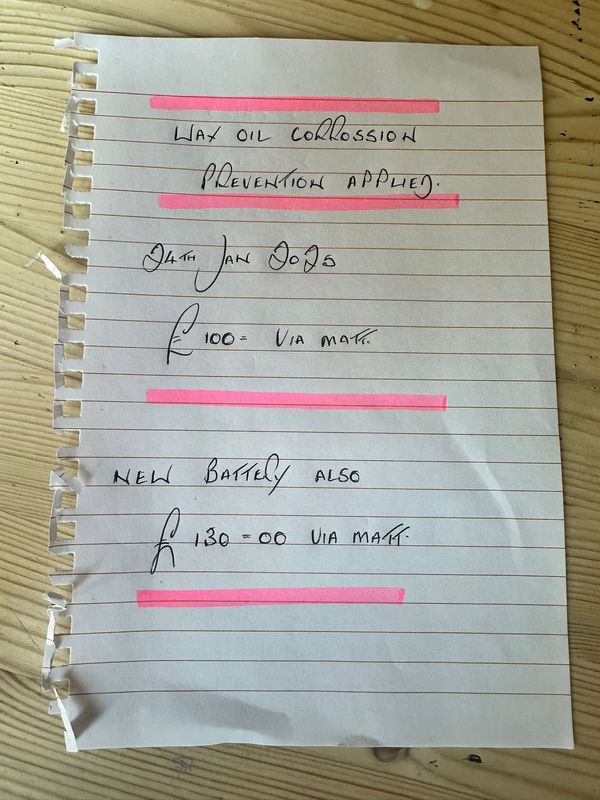 WAX OIL CORROSSION
PREVENTION APPLIED.
24TH JAN 2025
£ 100= VIA MATT.
NEW BATTERY ALSO
£ 130=00 VIA MATT.